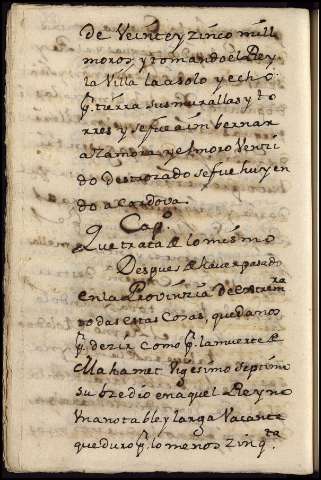 de Veinte y zinco mill
moros, y tomando el Rey
la Villa la asolo y echo
p.r tierra sus murallas y to
rres y se fue a imbernar
a Zamora y el moro Venzi
do Destrozado se fue huyen
do a Cordova.
Cap.o
Que trata de lo mismo
Despues de haver pasado
en la Provinzia de Extrem.ra
todas estas Cosas, quedanos
p.r dezir como p.r la muerte de
Mahamet Vigesimo septimo
su bzedio en aquel Reyno
Una notable y larga Vacante
que duro p.r lo menos zinq.ta